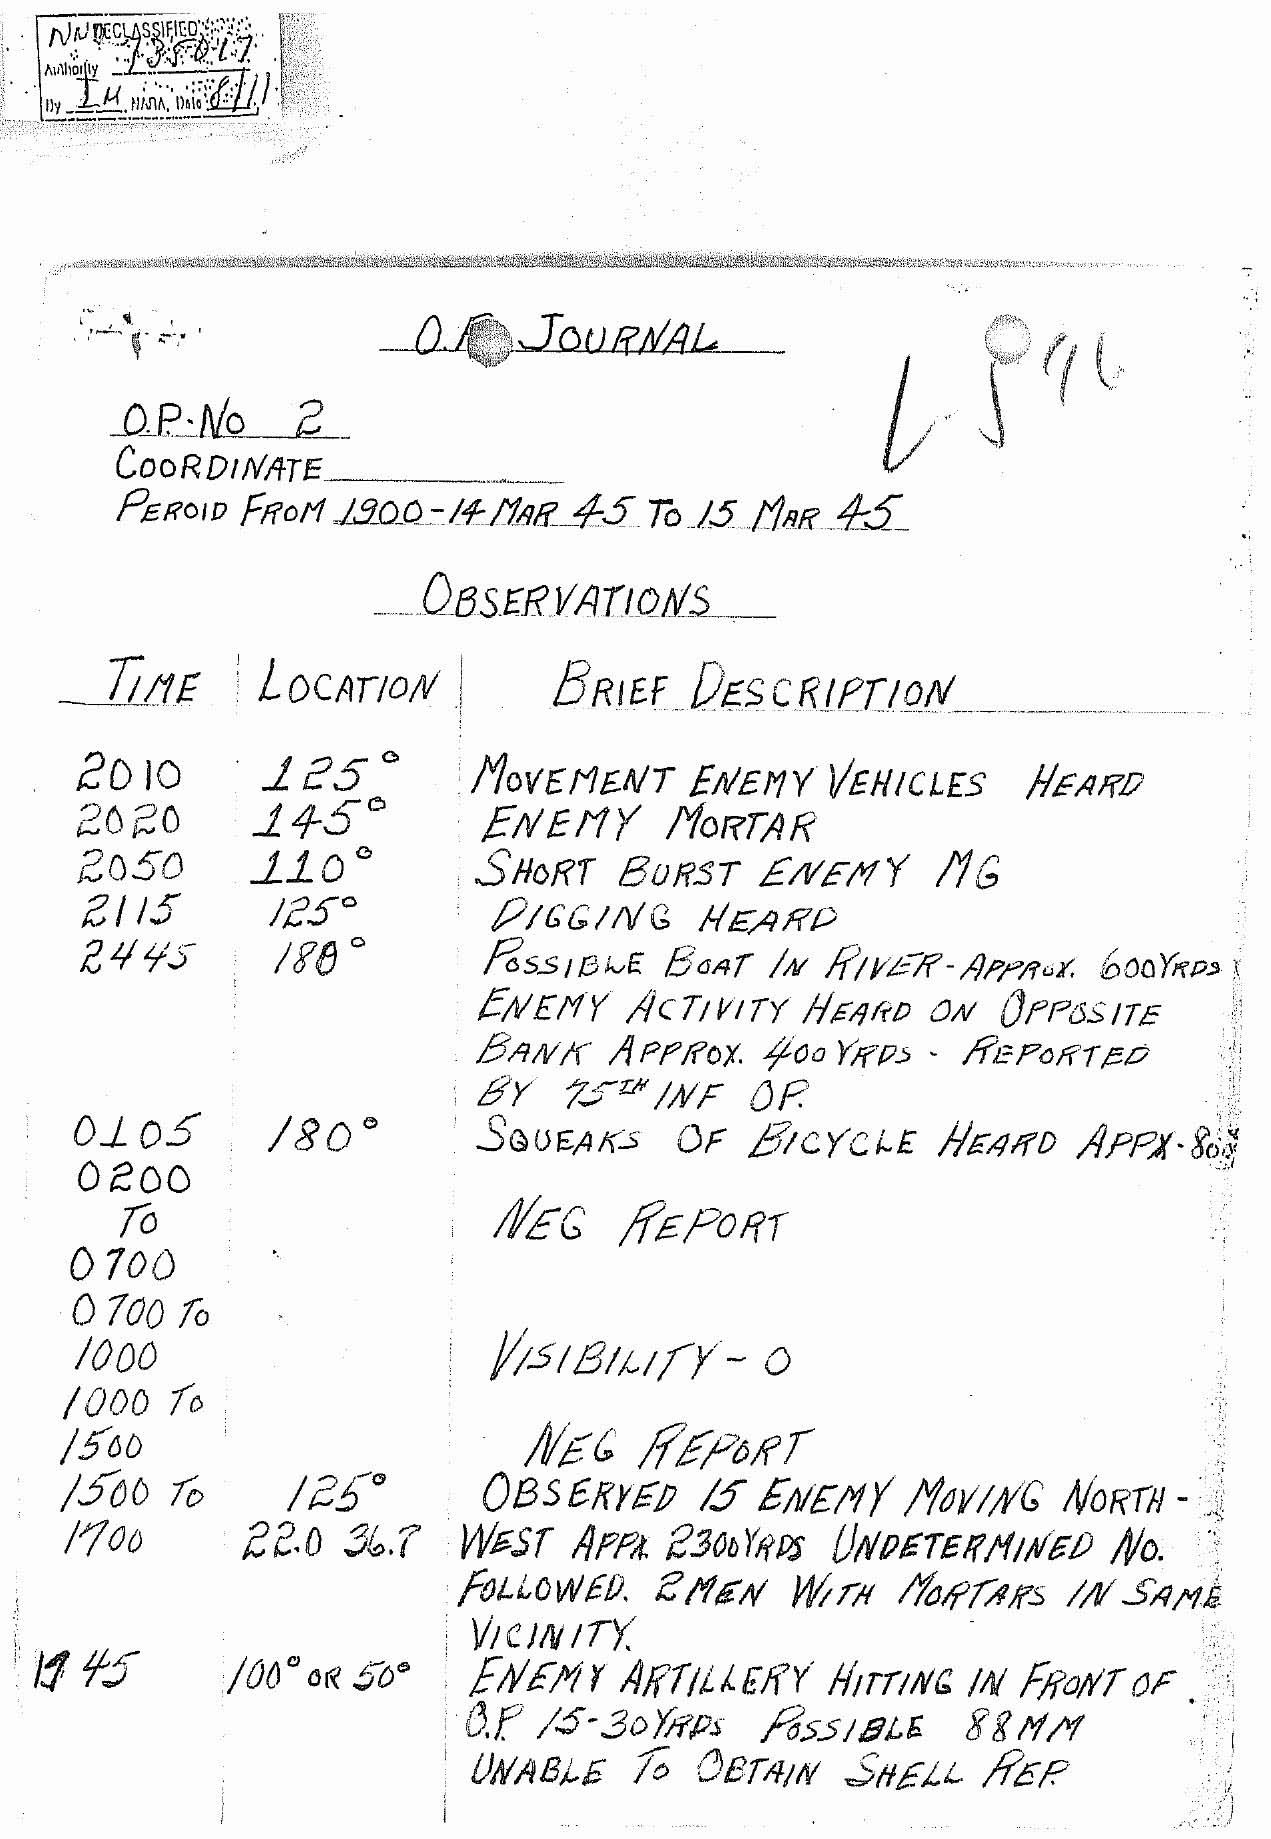 NND DECLASSIFIED
Authority 735017
By IM NARA, Date 8/11
O.P. JOURNAL
O.P. No 2
COORDINATE
PEROID FROM 1900-14 MAR 45 TO 15 MAR 45
OBSERVATIONS
TIME LOCATION BRIEF DESCRIPTION
2010 125° MOVEMENT ENEMY VEHICLES HEARD
2020 145° ENEMY MORTAR
2050 110° SHORT BURST ENEMY MG
2115 125° DIGGING HEARD
2445 180° POSSIBLE BOAT IN RIVER-APPROX. 600YRDS
ENEMY ACTIVITY HEARD ON OPPOSITE
BANK APPROX. 400 YRDS - REPORTED
BY 75TH INF OP.
0105 180° SQUEAKS OF BICYCLE HEARD APPX-800
0200
TO NEG REPORT
0700
0700 TO
1000 VISIBILITY - 0
1000 TO
1500 NEG REPORT
1500 TO 125° OBSERVED 15 ENEMY MOVING NORTH-
1700 22.0 36.7 WEST APPX. 2300YRDS UNDETERMINED NO.
FOLLOWED. 2 MEN WITH MORTARS IN SAME
VICINITY.
1945 100° OR 50° ENEMY ARTILLERY HITTING IN FRONT OF
O.P. 15-30YRDS POSSIBLE 88MM
UNABLE TO OBTAIN SHELL REP.